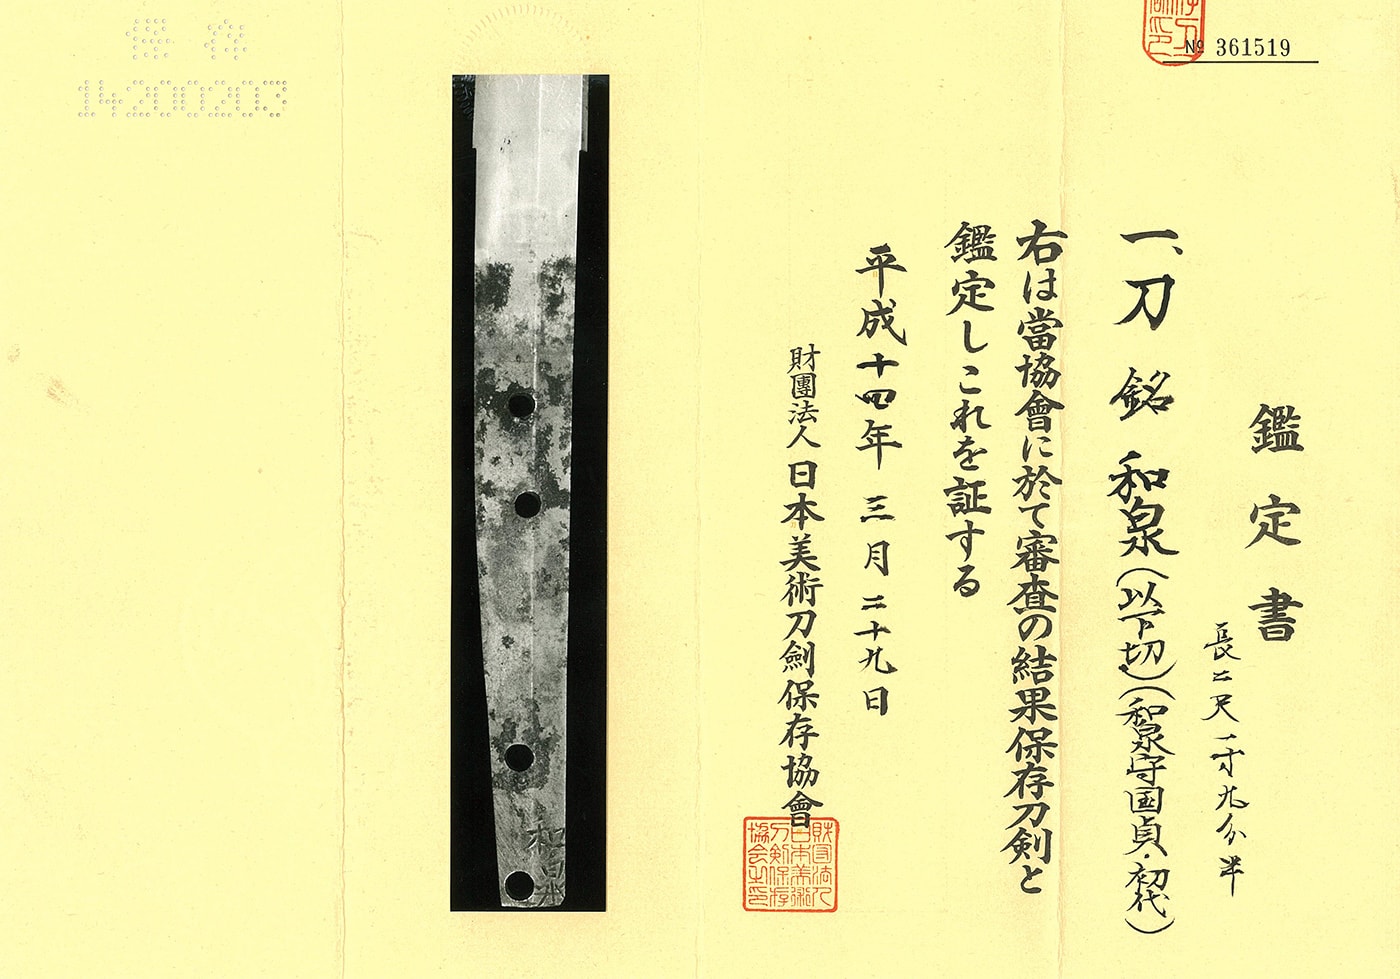 № 361519
鑑定書
長二尺一寸九分半
一、刀 銘 和泉(以下切)(和泉守国貞・初代)
右は當協會に於て審査の結果保存刀剣と
鑑定しこれを証する
平成十四年三月二十九日
財團法人日本美術刀劍保存協會
財団法人
日本美術
刀剣保存
協会之印
和泉
保存
14200203